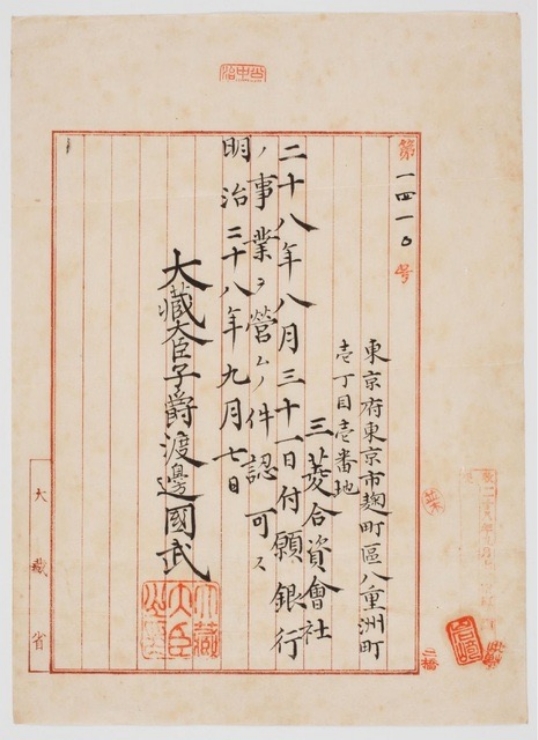 第一四一〇号
東京府東京市麹町區八重洲町
壱丁目壱番地
三菱合資會社
二十八年八月三十一日付願銀行
ノ事業ヲ營ムノ件認可ス
明治二十八年九月七日
大藏大臣子爵渡邊國武
大藏大臣之章
大藏省